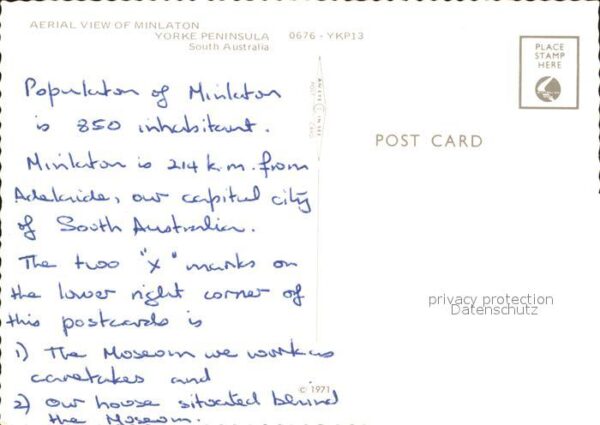 AERIAL VIEW OF MINLATON
YORKE PENINSULA 0676 - YKP13
South Australia
PLACE
STAMP
HERE
POST CARD
Populaton of Minlaton
is 850 inhabitant.
Minlaton is 214 k.m. from
Adelaide, our capital city
of South Australia.
The two "x" marks on
the lower right corner of
this postcards is
1) The Museom we work as
caretakes and
2) our house situated behind
the Museom.
© 1971
privacy protection
Datenschutz